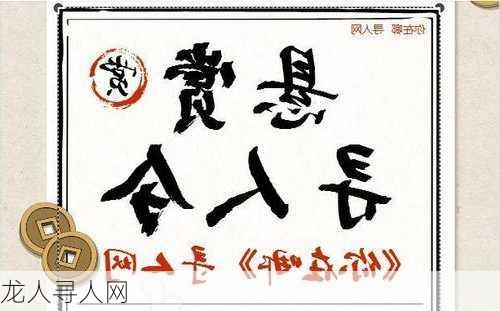 你在哪 寻人网
悬赏
寻人令
《你在哪》寻人网
龙人寻人网